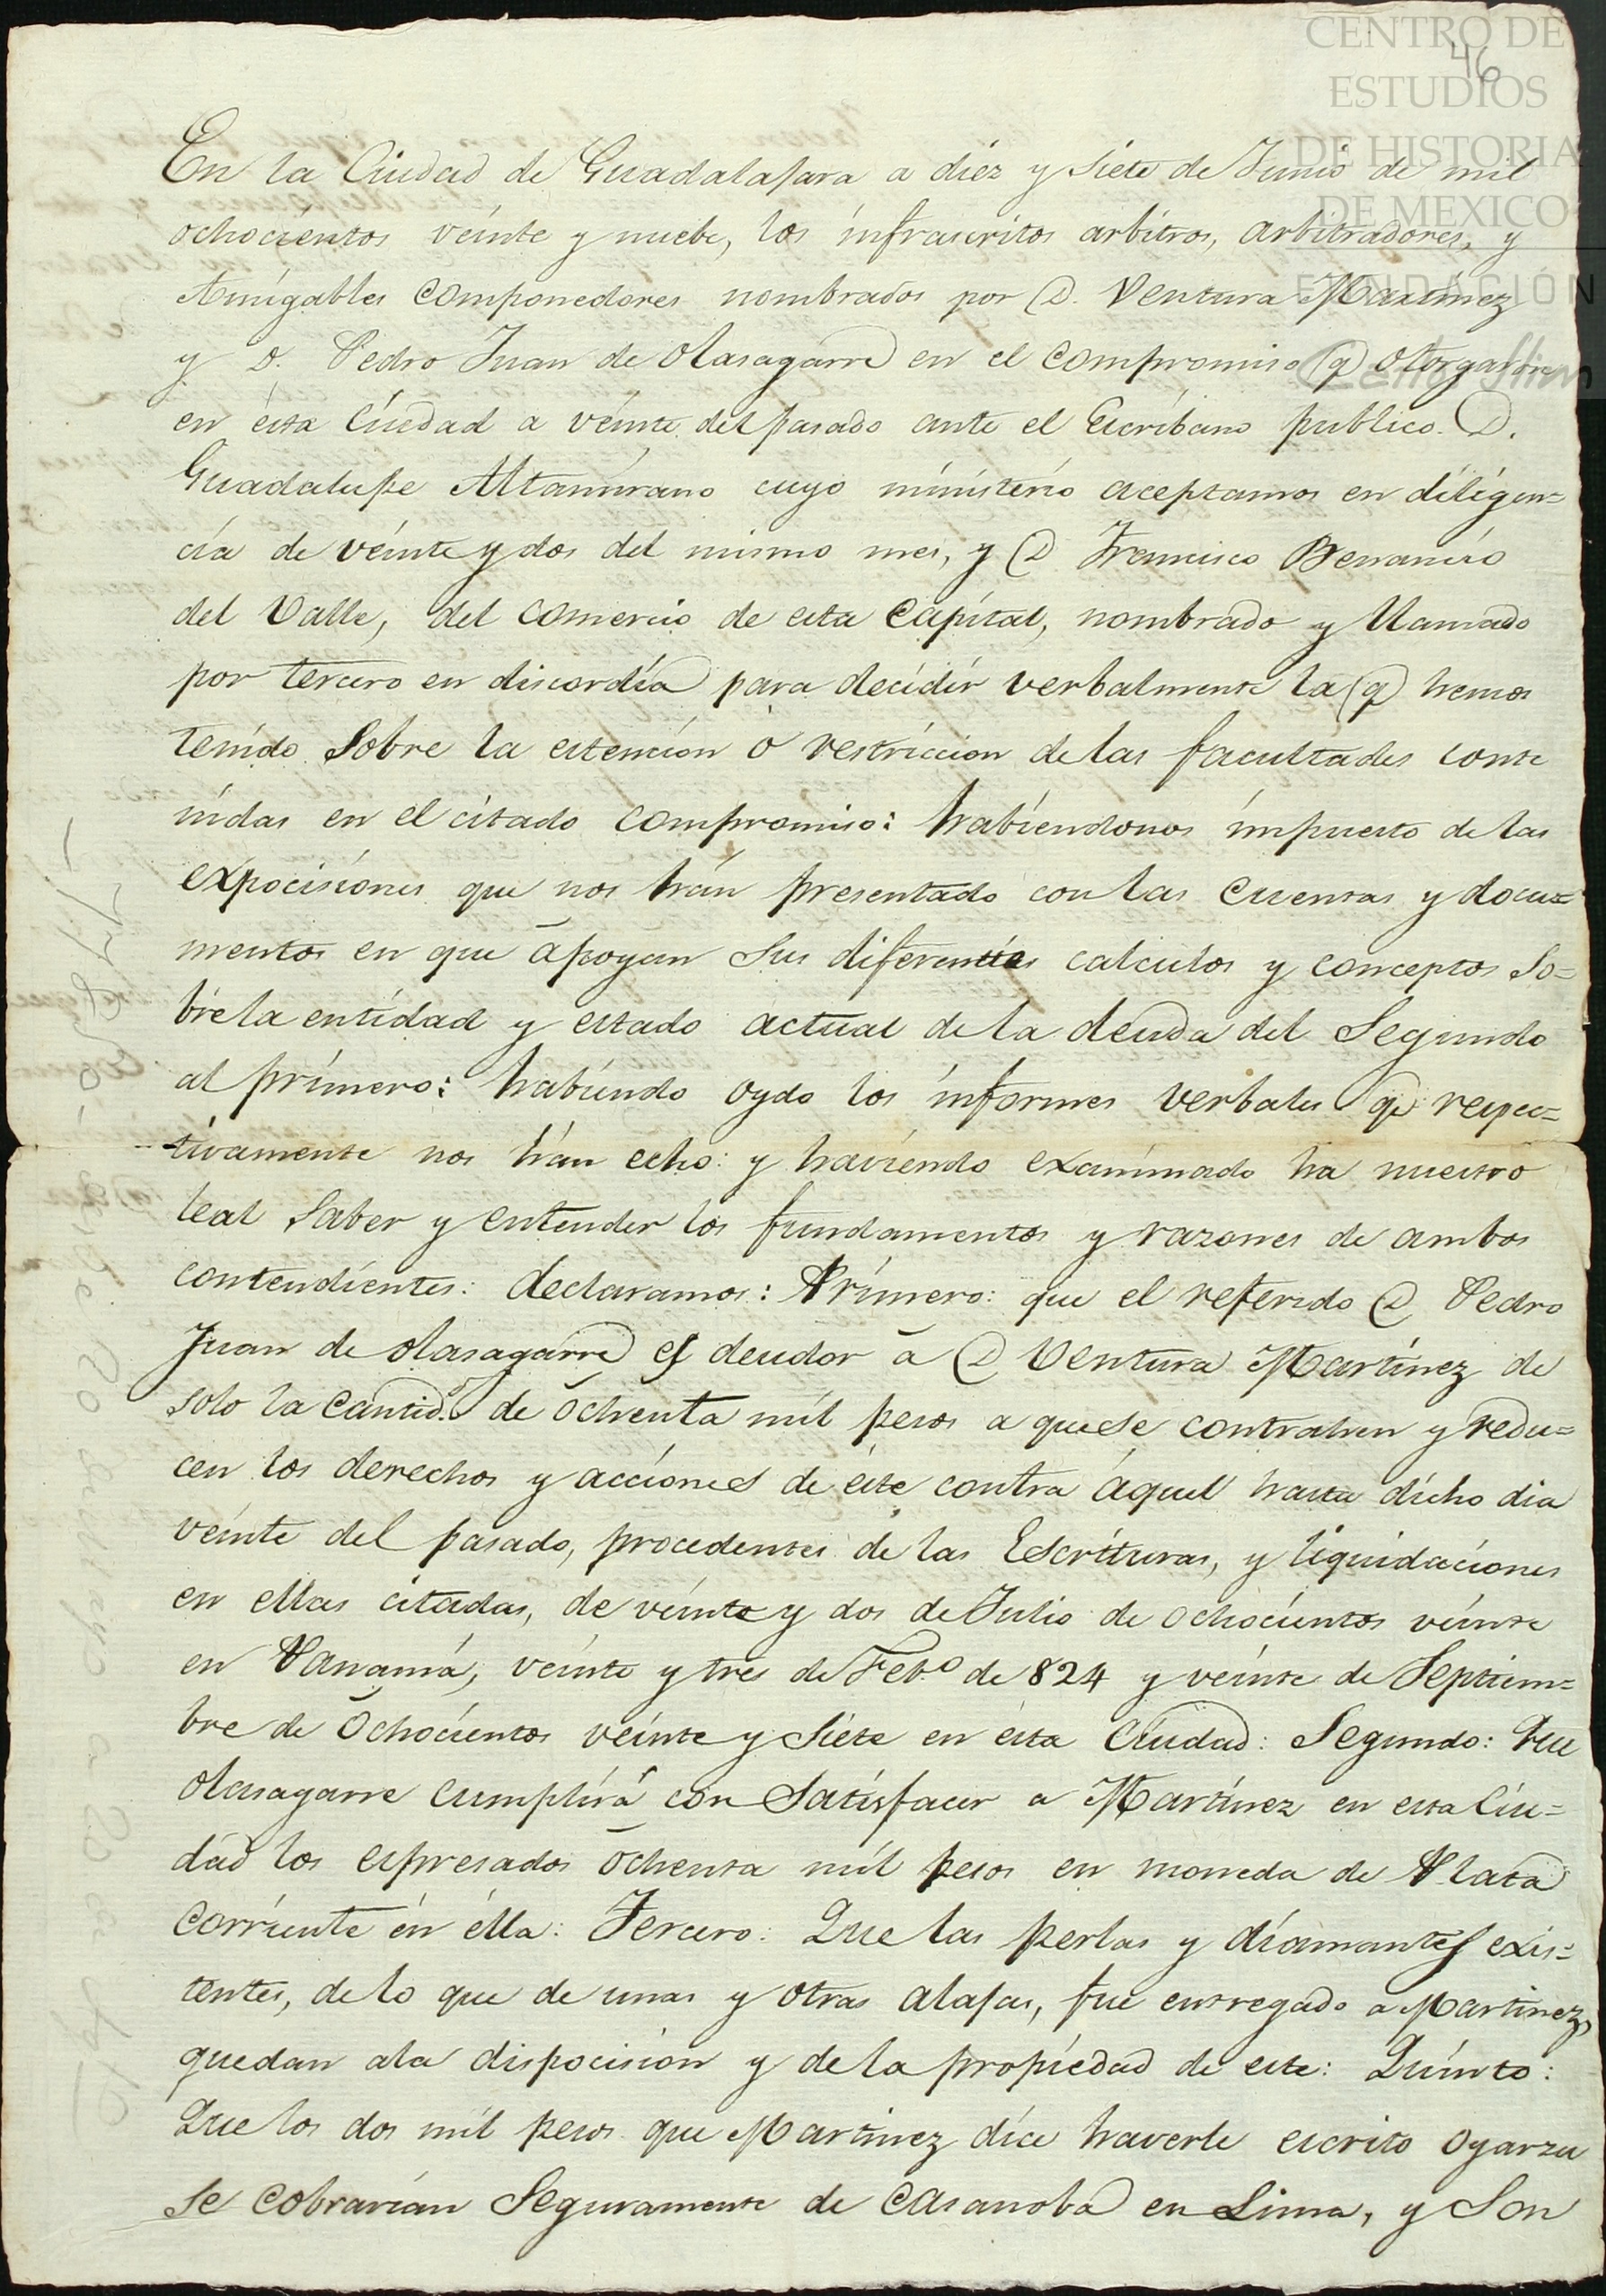 CENTRO DE
ESTUDIOS
DE HISTORIA
DE MEXICO
FUNDACIÓN
Carlos Slim
46
En la Ciudad de Guadalajara a diez y siete de Junio de mil
ochocientos veinte y nuebe, los infrascritos arbitros, arbitradores, y
Amigables componedores nombrados por D. Ventura Martinez
y D. Pedro Juan de Olasagarre en el compromiso q otorgaron
en esta Ciudad a veinte del pasado ante el Escribano publico D.
Guadalupe Altamirano cuyo ministerio aceptamos en diligen=
cia de veinte y dos del mismo mes, y D Francisco Benancio
del Valle, del comercio de esta Capital, nombrado y llamado
por tercero en discordia para decidir verbalmente la q hemos
tenido sobre la estencion o restriccion de las facultades conte
nidas en el citado compromiso: habiendonos impuesto de las
expocisiones que nos hán presentado con las cuentas y docu=
mentos en que apoyan sus diferentes calculos y conceptos so=
bre la entidad y estado actual de la deuda del segundo
al primero: habiendo oydo los informes verbales qe respec=
tivamente nos hán echo: y haviendo examinado ha nuestro
leal saber y entender los fundamentos y razones de ambos
contendientes: declaramos: Primero: que el referido D Pedro
Juan de Olasagarre es deudor a D Ventura Martinez de
solo la Cantid.d de ochenta mil pesos a que se contrahen y redu=
cen los derechos y acciones de éste contra aquel hasta dicho dia
veinte del pasado, procedentes de las Escrituras, y liquidaciones
en ellas citadas, de veinte y dos de Julio de ochocientos veinte
en Panamá, veinte y tres de Feb.o de 824 y veinte de Septiem=
bre de ochocientos veinte y siete en esta Ciudad: Segundo: Que
Olasagarre cumplirá con satisfacer a Martinez en esta Ciu=
dad los espresados ochenta mil pesos en moneda de Plata
corriente en élla: Tercero: Que las perlas y diamantes exis=
tentes, de lo que de unas y otras alajas, fue entregado a Martinez,
quedan ala dispocision y de la propiedad de este: Quinto:
Que los dos mil pesos que Martinez dice haverle escrito Oyarzu
se cobrarían seguramente de Casanoba en Lima, y son